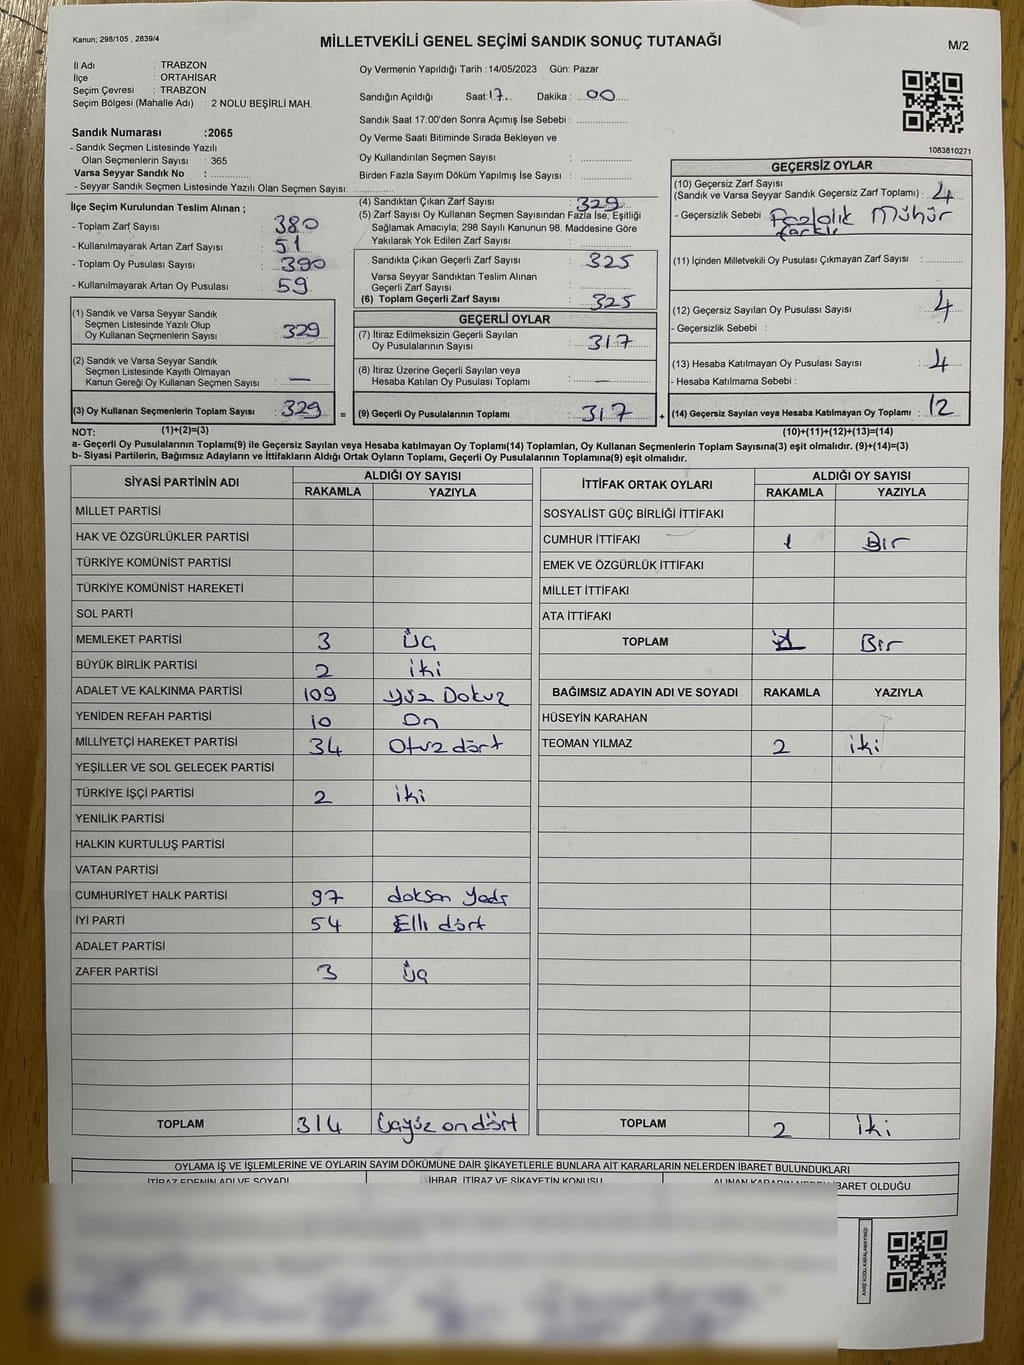 Kanun; 298/105 , 2839/4
MİLLETVEKİLİ GENEL SEÇİMİ SANDIK SONUÇ TUTANAĞI
M/2
İl Adı : TRABZON
İlçe : ORTAHİSAR
Seçim Çevresi : TRABZON
Seçim Bölgesi (Mahalle Adı) : 2 NOLU BEŞİRLİ MAH.
Sandık Numarası :2065
- Sandık Seçmen Listesinde Yazılı
Olan Seçmenlerin Sayısı : 365
Varsa Seyyar Sandık No :
- Seyyar Sandık Seçmen Listesinde Yazılı Olan Seçmen Sayısı:
Oy Vermenin Yapıldığı Tarih :14/05/2023 Gün: Pazar
Sandığın Açıldığı Saat:17 Dakika : 00
Sandık Saat 17:00'den Sonra Açılmış İse Sebebi :
Oy Verme Saati Bitiminde Sırada Bekleyen ve
Oy Kullandırılan Seçmen Sayısı :
Birden Fazla Sayım Döküm Yapılmış İse Sayısı :
1083810271
İlçe Seçim Kurulundan Teslim Alınan ;
- Toplam Zarf Sayısı : 380
- Kullanılmayarak Artan Zarf Sayısı : 51
- Toplam Oy Pusulası Sayısı : 390
- Kullanılmayarak Artan Oy Pusulası : 59
(1) Sandık ve Varsa Seyyar Sandık
Seçmen Listesinde Yazılı Olup
Oy Kullanan Seçmenlerin Sayısı : 329
(2) Sandık ve Varsa Seyyar Sandık
Seçmen Listesinde Kayıtlı Olmayan
Kanun Gereği Oy Kullanan Seçmen Sayısı : —
(3) Oy Kullanan Seçmenlerin Toplam Sayısı : 329 =
(4) Sandıktan Çıkan Zarf Sayısı : 329
(5) Zarf Sayısı Oy Kullanan Seçmen Sayısından Fazla İse, Eşitliği
Sağlamak Amacıyla; 298 Sayılı Kanunun 98. Maddesine Göre
Yakılarak Yok Edilen Zarf Sayısı :
Sandıkta Çıkan Geçerli Zarf Sayısı : 325
Varsa Seyyar Sandıktan Teslim Alınan
Geçerli Zarf Sayısı :
(6) Toplam Geçerli Zarf Sayısı : 325
GEÇERLİ OYLAR
(7) İtiraz Edilmeksizin Geçerli Sayılan
Oy Pusulalarının Sayısı : 317
(8) İtiraz Üzerine Geçerli Sayılan veya
Hesaba Katılan Oy Pusulası Toplamı : —
(9) Geçerli Oy Pusulalarının Toplamı : 317 +
GEÇERSİZ OYLAR
(10) Geçersiz Zarf Sayısı
(Sandık ve Varsa Seyyar Sandık Geçersiz Zarf Toplamı) : 4
- Geçersizlik Sebebi : Mühür
(11) İçinden Milletvekili Oy Pusulası Çıkmayan Zarf Sayısı :
(12) Geçersiz Sayılan Oy Pusulası Sayısı : 4
- Geçersizlik Sebebi :
(13) Hesaba Katılmayan Oy Pusulası Sayısı : 4
- Hesaba Katılmama Sebebi :
(14) Geçersiz Sayılan veya Hesaba Katılmayan Oy Toplamı : 12
NOT: (1)+(2)=(3) (10)+(11)+(12)+(13)=(14)
a- Geçerli Oy Pusulalarının Toplamı(9) ile Geçersiz Sayılan veya Hesaba katılmayan Oy Toplamı(14) Toplamları, Oy Kullanan Seçmenlerin Toplam Sayısına(3) eşit olmalıdır. (9)+(14)=(3)
b- Siyasi Partilerin, Bağımsız Adayların ve İttifakların Aldığı Ortak Oyların Toplamı, Geçerli Oy Pusulalarının Toplamına(9) eşit olmalıdır.
SİYASİ PARTİNİN ADI ALDIĞI OY SAYISI
RAKAMLA YAZIYLA
MİLLET PARTİSİ
HAK VE ÖZGÜRLÜKLER PARTİSİ
TÜRKİYE KOMÜNİST PARTİSİ
TÜRKİYE KOMÜNİST HAREKETİ
SOL PARTİ
MEMLEKET PARTİSİ 3 üç
BÜYÜK BİRLİK PARTİSİ 2 iki
ADALET VE KALKINMA PARTİSİ 109 yüz Dokuz
YENİDEN REFAH PARTİSİ 10 On
MİLLİYETÇİ HAREKET PARTİSİ 34 Otuz dört
YEŞİLLER VE SOL GELECEK PARTİSİ
TÜRKİYE İŞÇİ PARTİSİ 2 iki
YENİLİK PARTİSİ
HALKIN KURTULUŞ PARTİSİ
VATAN PARTİSİ
CUMHURİYET HALK PARTİSİ 97 doksan yedi
İYİ PARTİ 54 Elli dört
ADALET PARTİSİ
ZAFER PARTİSİ 3 üç
TOPLAM 314 üçyüz ondört
İTTİFAK ORTAK OYLARI ALDIĞI OY SAYISI
RAKAMLA YAZIYLA
SOSYALİST GÜÇ BİRLİĞİ İTTİFAKI
CUMHUR İTTİFAKI 1 Bir
EMEK VE ÖZGÜRLÜK İTTİFAKI
MİLLET İTTİFAKI
ATA İTTİFAKI
TOPLAM 1 Bir
BAĞIMSIZ ADAYIN ADI VE SOYADI RAKAMLA YAZIYLA
HÜSEYİN KARAHAN
TEOMAN YILMAZ 2 iki
TOPLAM 2 iki
OYLAMA İŞ VE İŞLEMLERİNE VE OYLARIN SAYIM DÖKÜMÜNE DAİR ŞİKAYETLERLE BUNLARA AİT KARARLARIN NELERDEN İBARET BULUNDUKLARI
İTİRAZ EDENİN ADI VE SOYADI İHBAR, İTİRAZ VE ŞİKAYETİN KONUSU ALINAN KARARIN NEDEN İBARET OLDUĞU
KARE KODU KARALAMAYINIZ!